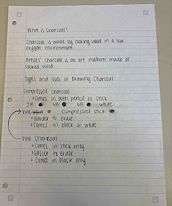 What is Charcoal?
Charcoal is made by burning wood in a low
oxygen environment
Artists' Charcoal is an art medium made of
burned wood
Types and Uses of Drawing Charcoal
Compressed Charcoal
• Comes in both pencil to stick
white
compressed stick
• Harder to erase
• Comes in black or white
Vine Charcoal
• Comes in stick only
• Easier to erase
• Comes in black only